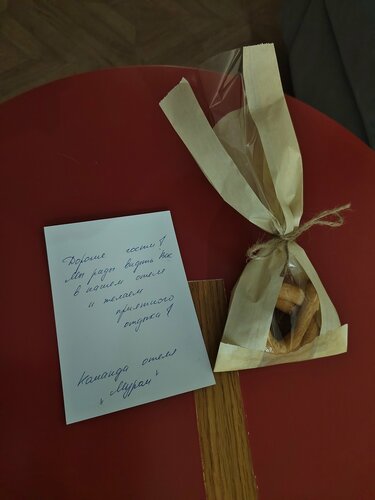 Дорогие гости!
Мы рады видеть Вас
в нашем отеле
и желаем
приятного
отдыха!
Команда отеля
"Мурам"